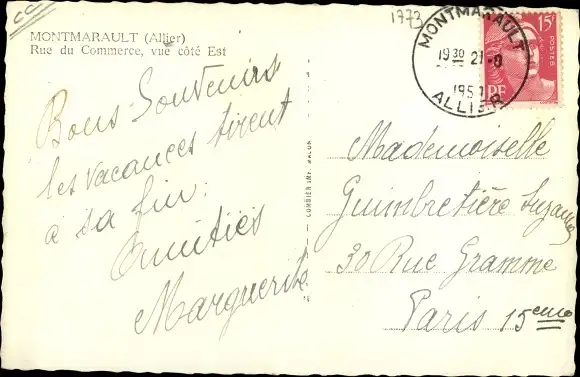 CC
MONTMARAULT (Allier)
Rue du Commerce, vue côté Est
1773
MONTMARAULT
1930 21-8
195
ALLIER
15F
POSTES
RF
Bons Souvenirs
les vacances tirent
à sa fin.
Amitiés
Marguerite
COMBIER IMP. MACON
Mademoiselle
Guimbretière Suzanne
30 Rue Gramme
Paris 15eme